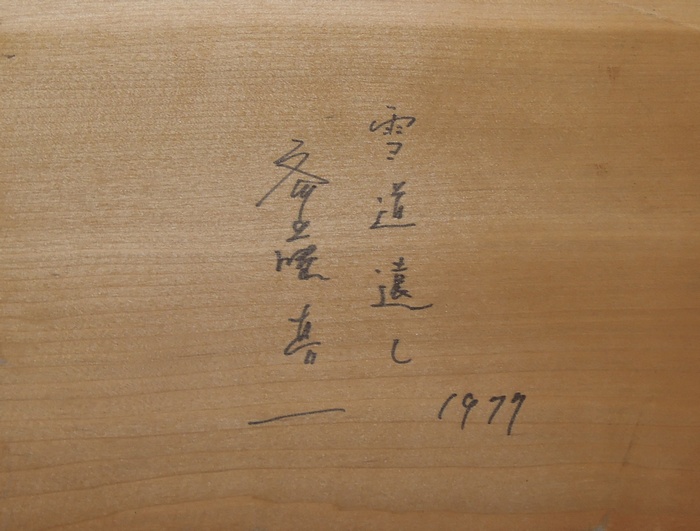 雪道遠し
1977
斎藤喜一